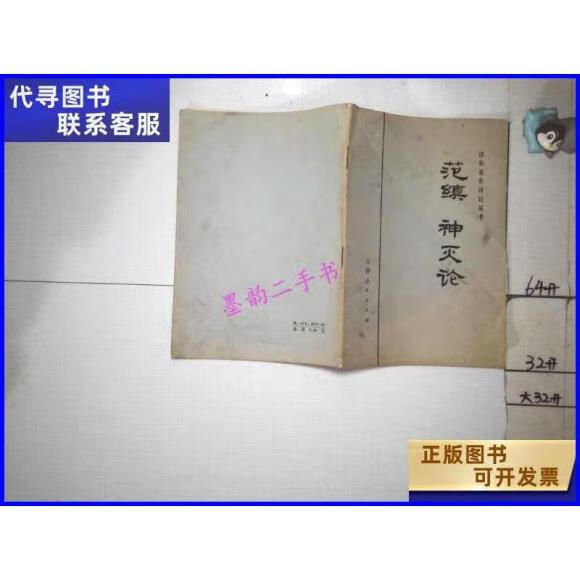 代寻图书
联系客服
法家著作译注丛书
范缜 神灭论
人民出版社
墨韵二手书
64开
32开
大32开
正版图书
可开发票